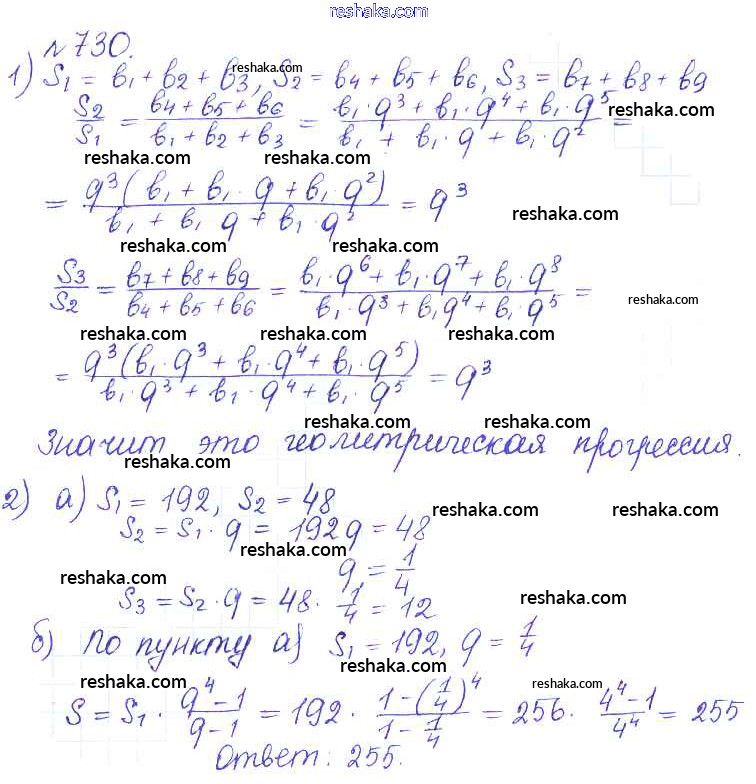 reshaka.com
№ 730.
1) S₁ = b₁ + b₂ + b₃, S₂ = b₄ + b₅ + b₆, S₃ = b₇ + b₈ + b₉
reshaka.com reshaka.com
S₂/S₁ = (b₄ + b₅ + b₆)/(b₁ + b₂ + b₃) = (b₁·q³ + b₁·q⁴ + b₁·q⁵)/(b₁ + b₁·q + b₁·q²) =
reshaka.com
reshaka.com reshaka.com reshaka.com
= q³(b₁ + b₁·q + b₁·q²)/(b₁ + b₁ q + b₁·q²) = q³
reshaka.com
reshaka.com reshaka.com
S₃/S₂ = (b₇ + b₈ + b₉)/(b₄ + b₅ + b₆) = (b₁·q⁶ + b₁·q⁷ + b₁·q⁸)/(b₁·q³ + b₁q⁴ + b₁·q⁵) =
reshaka.com
reshaka.com reshaka.com reshaka.com
= q³(b₁·q³ + b₁·q⁴ + b₁·q⁵)/(b₁·q³ + b₁·q⁴ + b₁·q⁵) = q³
reshaka.com reshaka.com
Значит это геометрическая прогрессия.
reshaka.com
2) а) S₁ = 192, S₂ = 48
reshaka.com reshaka.com
S₂ = S₁·q = 192q = 48
reshaka.com
q = 1/4
reshaka.com reshaka.com
S₃ = S₂·q = 48·1/4 = 12
б) По пункту а) S₁ = 192, q = 1/4
reshaka.com reshaka.com
reshaka.com reshaka.com reshaka.com
S = S₁·(q⁴-1)/(q-1) = 192·(1-(1/4)⁴)/(1-1/4) = 256·(4⁴-1)/4⁴ = 255
reshaka.com reshaka.com
Ответ: 255.
reshaka.com